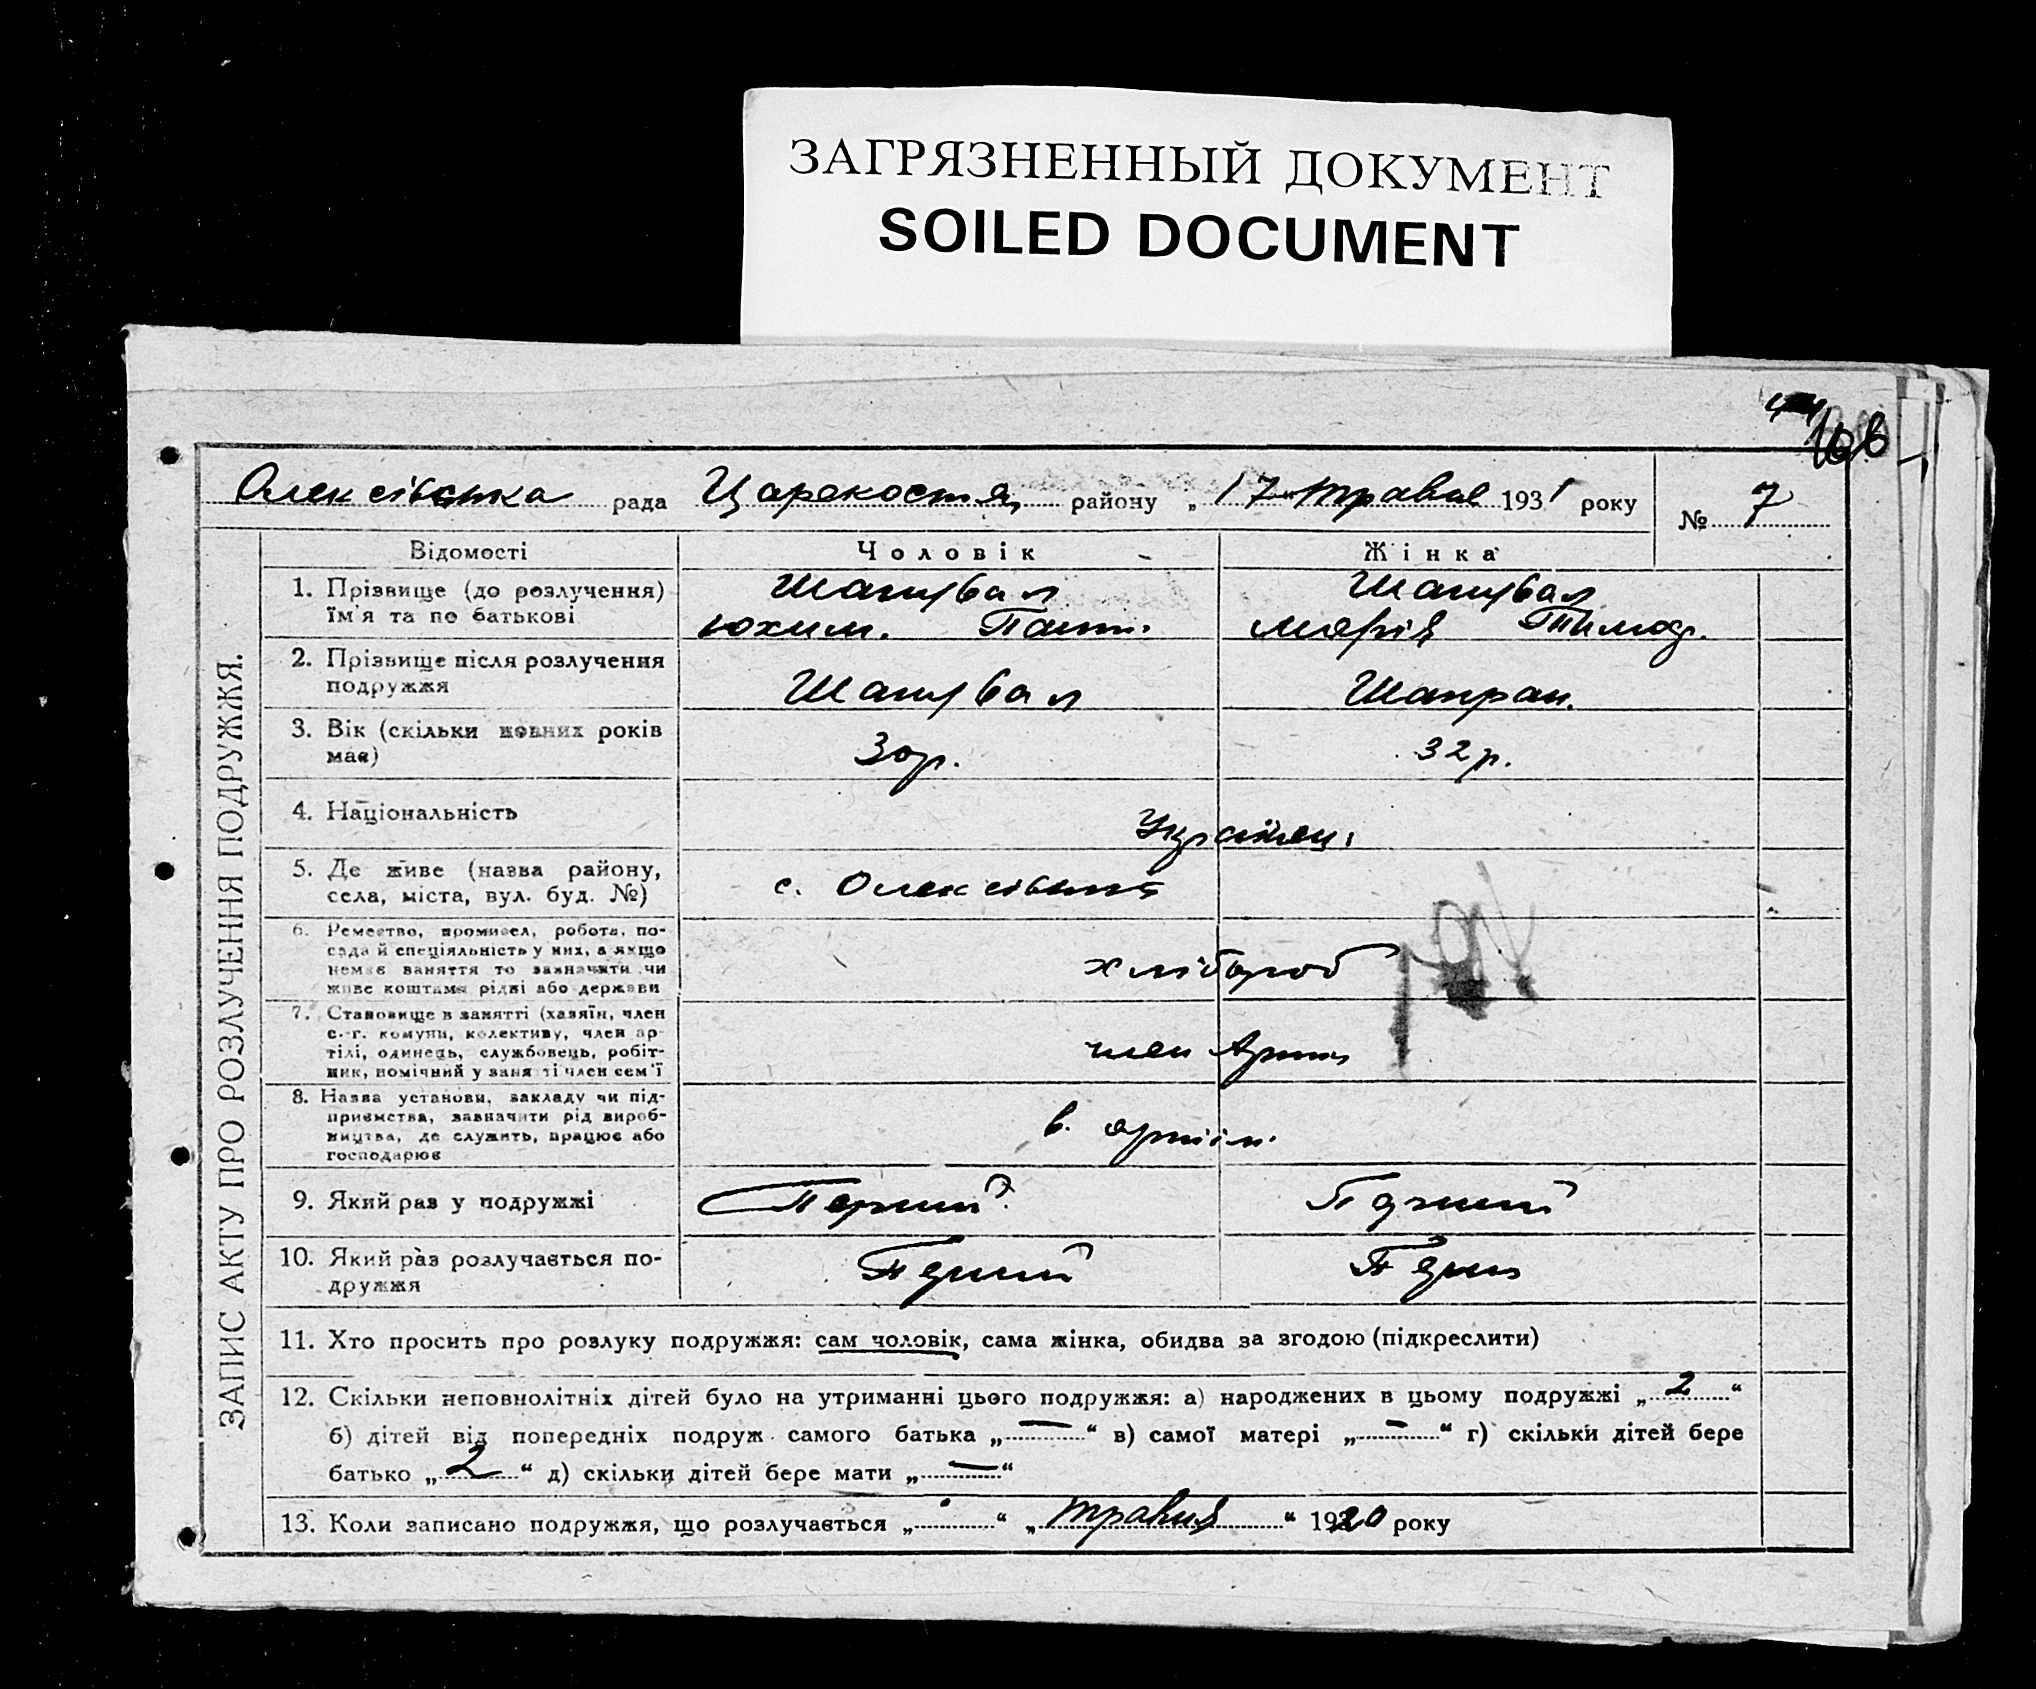 ЗАГРЯЗНЕННЫЙ ДОКУМЕНТ
SOILED DOCUMENT
Олексівська рада Царекостян району „ 17 " травня 1931 року № 7
ЗАПИС АКТУ ПРО РОЗЛУЧЕННЯ ПОДРУЖЖЯ.
Відомості Чоловік Жінка
1. Прізвище (до розлучення) ім'я та по батькові
Шагидвал Шагидвал
Юхим. Пант. Марія Тимоф.
2. Прізвище після розлучення подружжя
Шагидвал Шапран.
3. Вік (скільки повних років має)
30р. 32р.
4. Національність
Українці
5. Де живе (назва району, села, міста, вул. буд. №)
с. Олексівка
6. Ремество, промисел, робота, по-
сада й спеціяльність у них, а якщо
немає заняття то зазначити чи
живе коштами рідні або держави
хлібороб
7. Становище в занятті (хазяїн, член
с.-г. комуни, колективу, член ар-
тілі, одинець, службовець, робіт-
ник, помічний у занятті член сем'ї
член Артіл
8. Назва установи, закладу чи під-
приємства, зазначити рід вироб-
ництва, де служить, працює або
господарює
в. артіл.
9. Який раз у подружжі
Перший Перший
10. Який раз розлучається по-
дружжя
Перший
11. Хто просить про розлуку подружжя: сам чоловік, сама жінка, обидва за згодою (підкреслити)
12. Скільки неповнолітніх дітей було на утриманні цього подружжя: а) народжених в цьому подружжі „ 2 “
б) дітей від попередніх подруж самого батька „ — “ в) самої матері „ — “ г) скільки дітей бере
батько „ 2 “ д) скільки дітей бере мати „ — “
13. Коли записано подружжя, що розлучається „ “ „ травня “ 1920 року